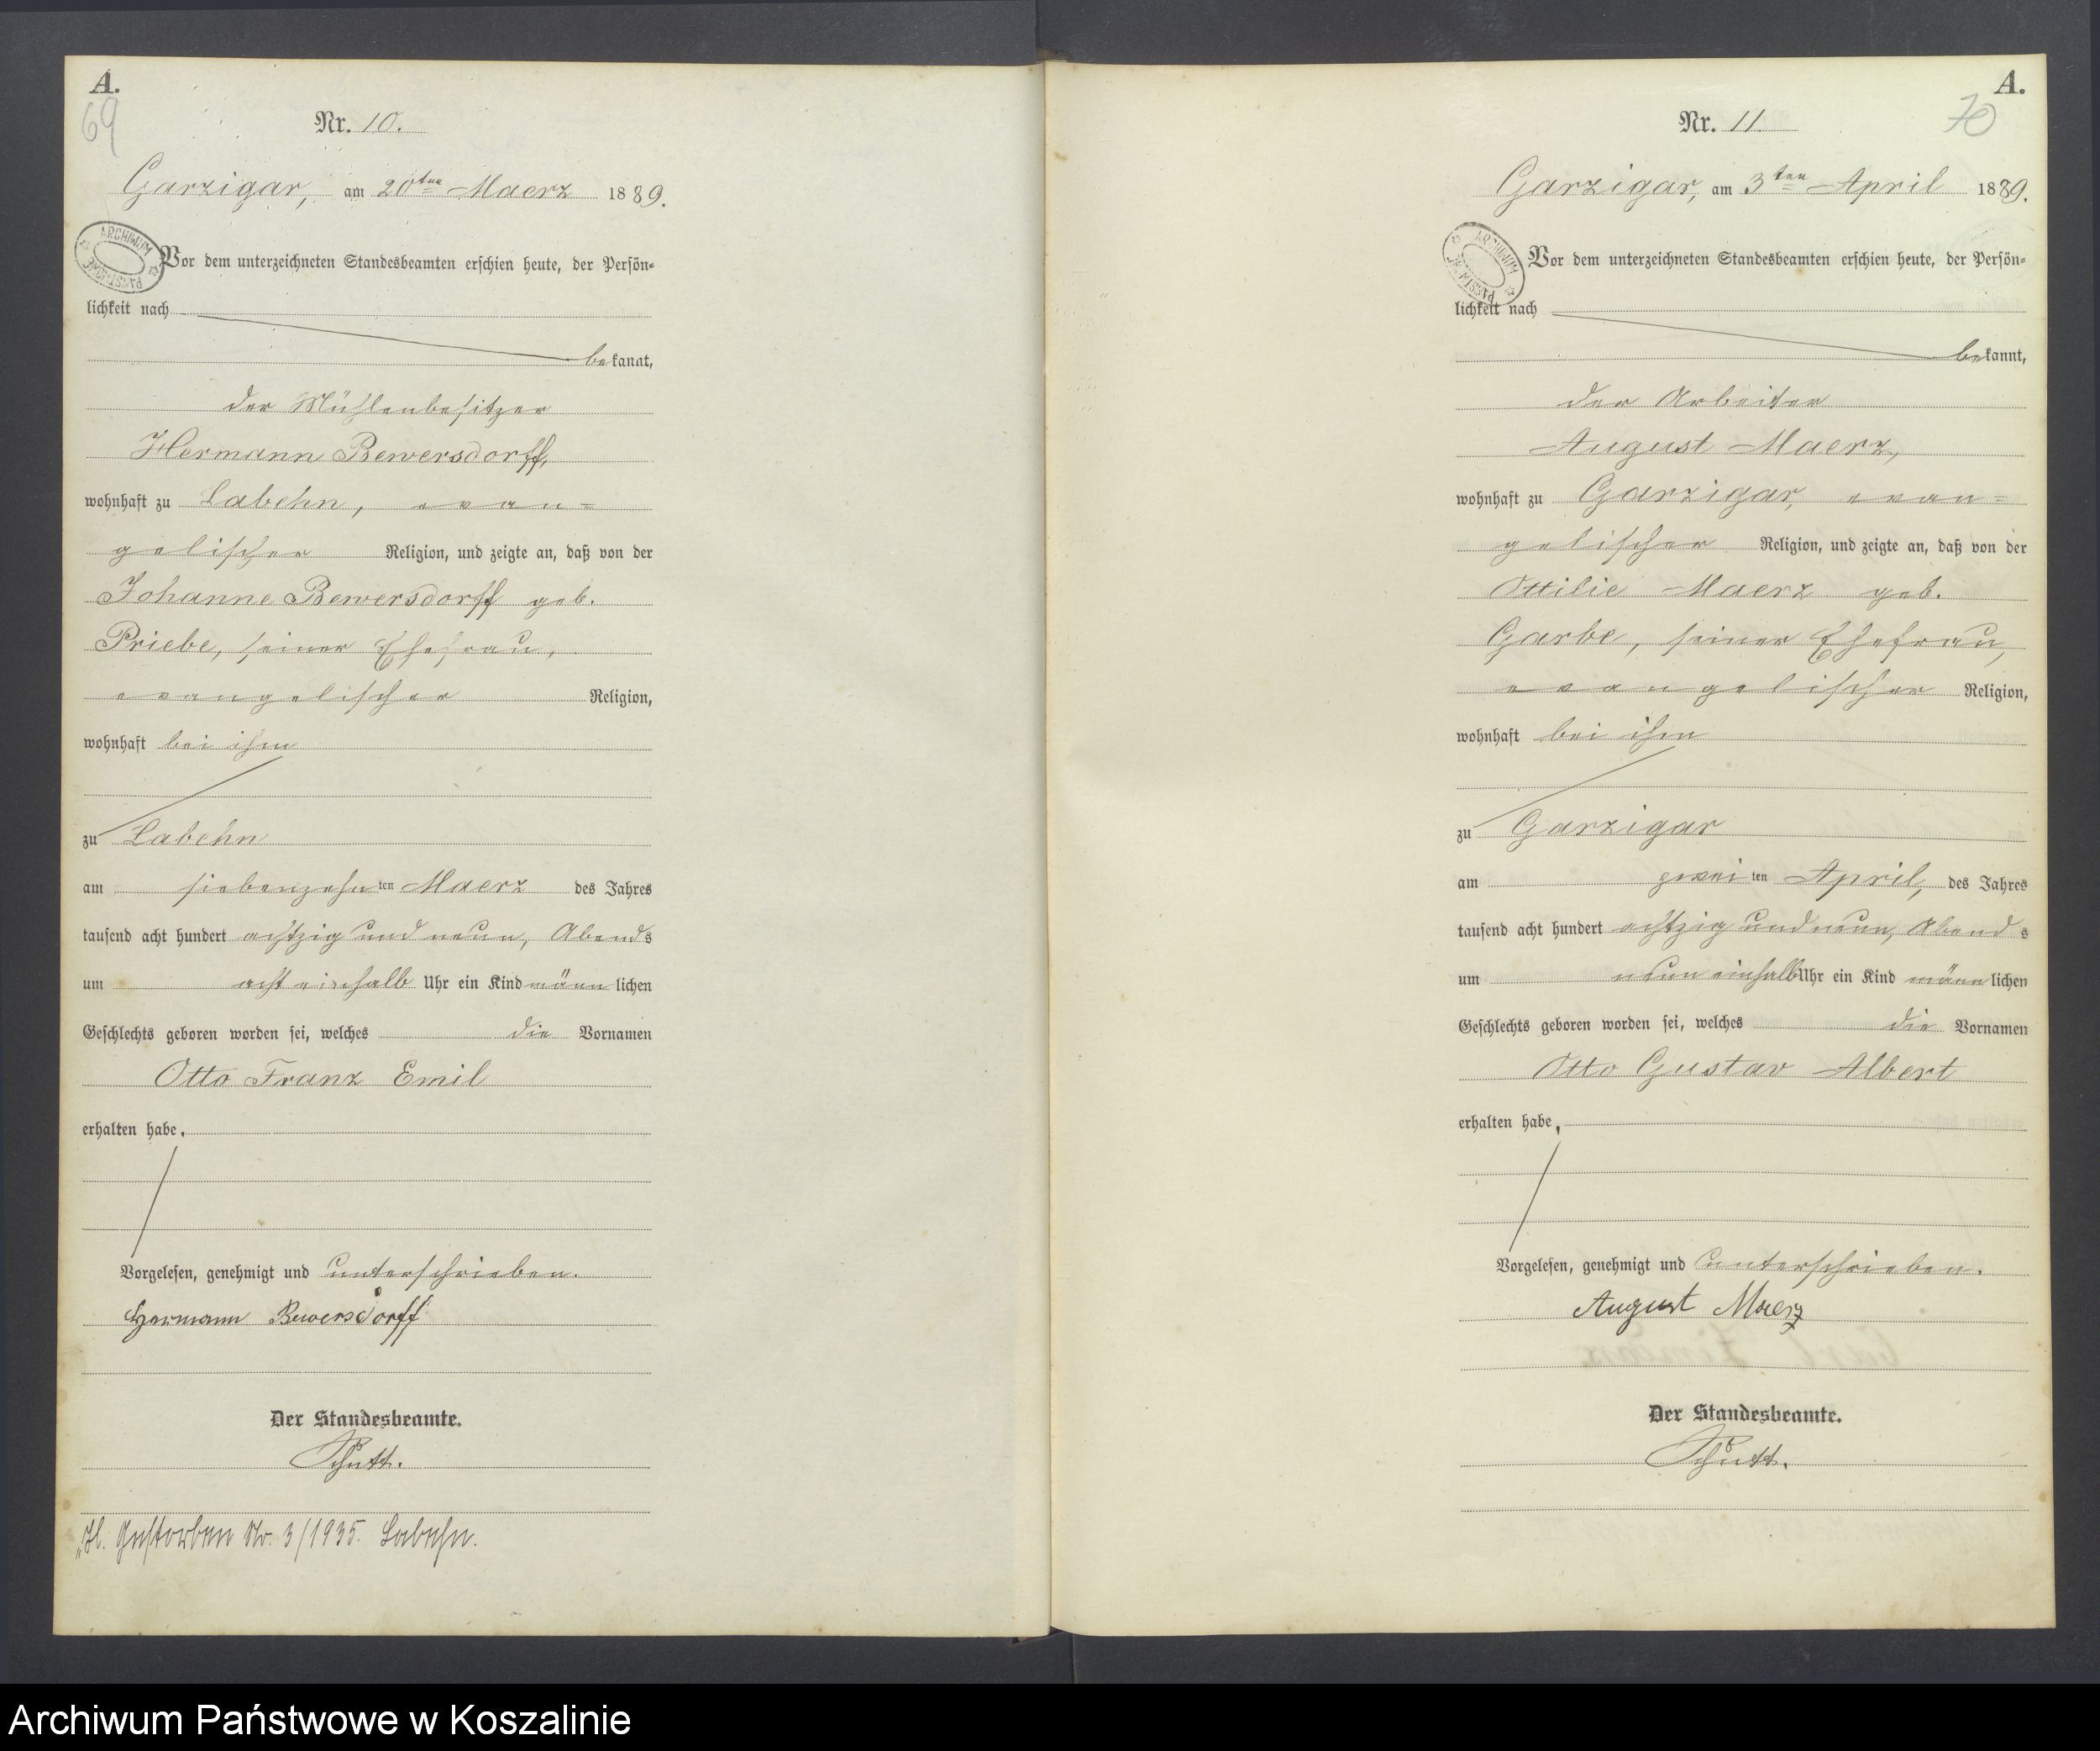 A.
69
Nr. 10.
Garzigar, am 20ten Maerz 1889.
ARCHIWUM PAŃSTWOWE
Vor dem unterzeichneten Standesbeamten erschien heute, der Persön-
lichkeit nach
bekannt,
der Mühlenbesitzer
Hermann Bewersdorff,
wohnhaft zu Labehn, evan=
gelischer Religion, und zeigte an, daß von der
Johanne Bewersdorff geb.
Priebe, seiner Ehefrau,
evangelischer Religion,
wohnhaft bei ihm
zu Labehn
am siebenzehnten Maerz des Jahres
tausend acht hundert achtzig und neun, Abends
um acht einhalb Uhr ein Kind männlichen
Geschlechts geboren worden sei, welches die Vornamen
Otto Franz Emil
erhalten habe.
Vorgelesen, genehmigt und unterschrieben.
Hermann Bewersdorff
Der Standesbeamte.
Schutt.
Gestorben Nr. 3/1935. Labehn.
A.
70
Nr. 11.
Garzigar, am 3ten April 1889.
ARCHIWUM PAŃSTWOWE
Vor dem unterzeichneten Standesbeamten erschien heute, der Persön-
lichkeit nach
bekannt,
der Arbeiter
August Maerz,
wohnhaft zu Garzigar, evan=
gelischer Religion, und zeigte an, daß von der
Ottilie Maerz geb.
Garbe, seiner Ehefrau,
evangelischer Religion,
wohnhaft bei ihm
zu Garzigar
am zweiten April, des Jahres
tausend acht hundert achtzig und neun, Abends
um neun einhalb Uhr ein Kind männlichen
Geschlechts geboren worden sei, welches die Vornamen
Otto Gustav Albert
erhalten habe.
Vorgelesen, genehmigt und unterschrieben.
August Maerz
Der Standesbeamte.
Schutt.
Archiwum Państwowe w Koszalinie